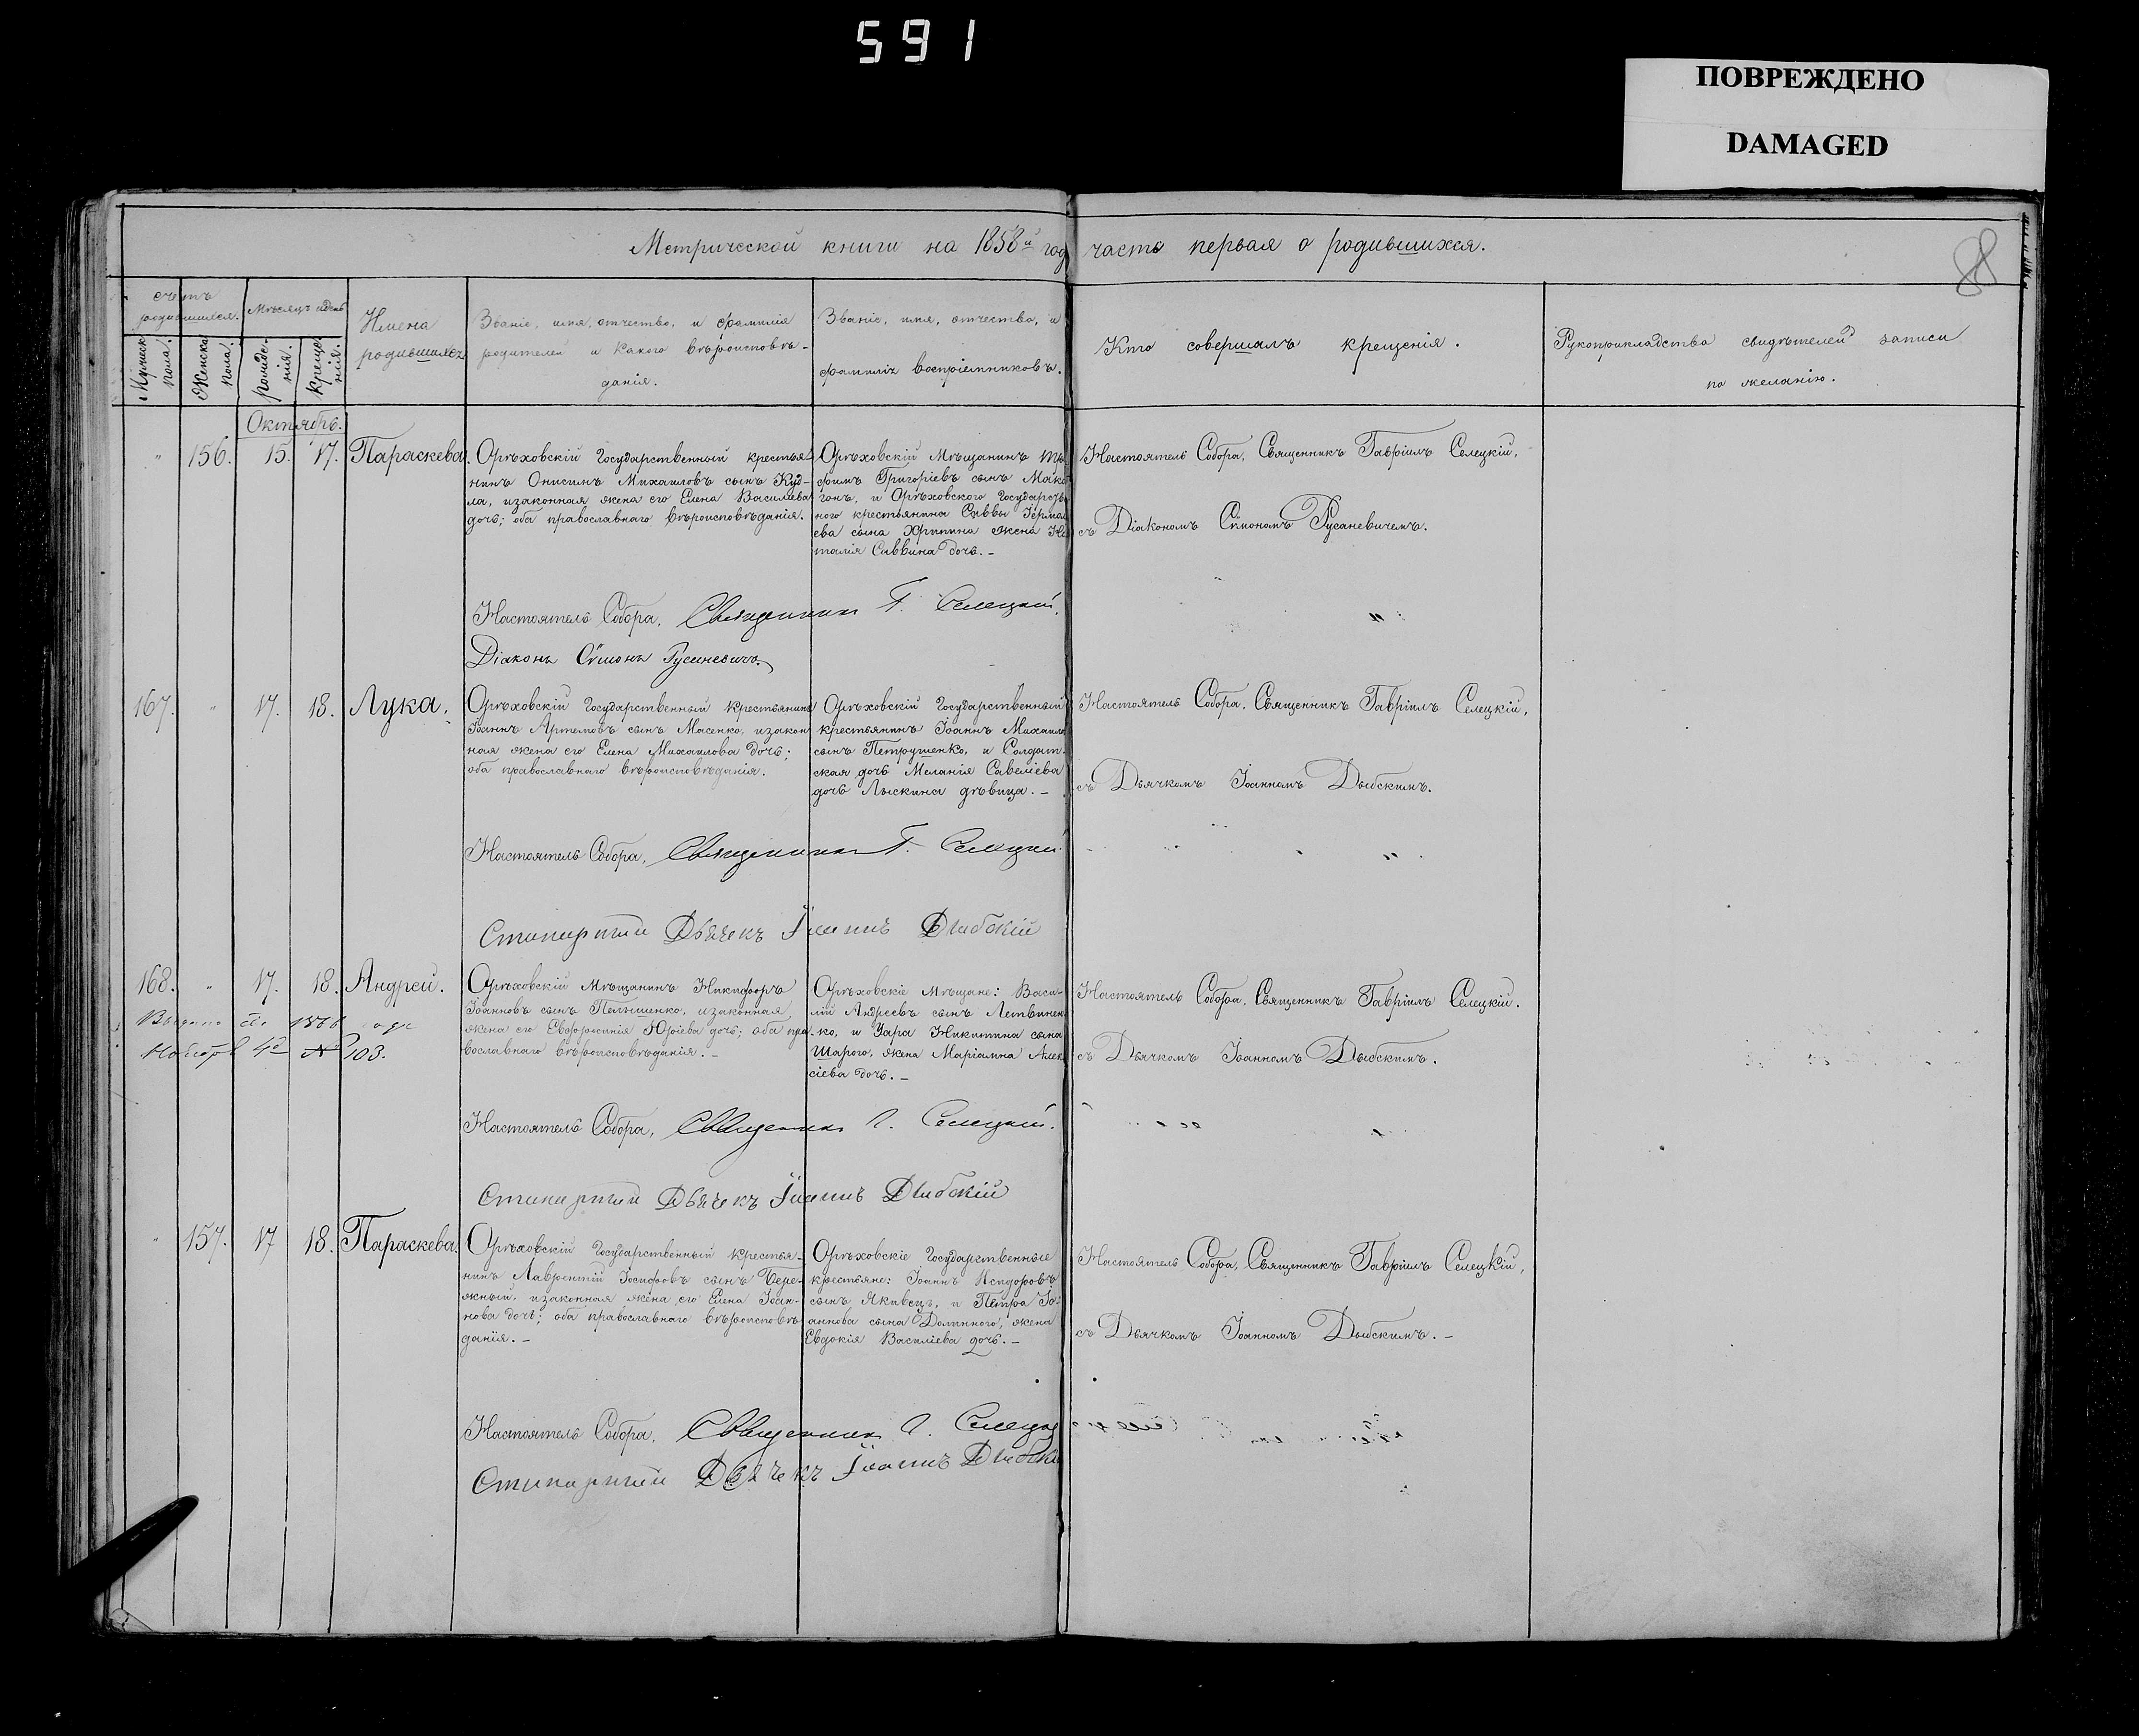 591
ПОВРЕЖДЕНО
DAMAGED
Метрической книги на 1858й год часть первая о родившихся.
88
счетъ родившихся.
Мѣсяцъ и день
Мужеска пола.
Женска пола.
рожденія.
крещенія.
Имена родившихся.
Званіе, имя, отчество, и фамилія
родителей и какого вѣроисповѣ-
данія.
Званіе, имя, отчество, и
фамилія воспріемниковъ.
Кто совершалъ крещенія.
Рукоприкладство свидѣтелей записи
по желанію.
Октябрь.
" 156. 15. 17. Параскева.
Орѣховскій Государственный крестья-
нинъ Онисимъ Михаиловъ сынъ Куд-
ла, изаконная жена его Елена Василіева
дочь; оба православнаго вѣроисповѣданія.
Орѣховскій Мѣщанинъ
фимъ Григоріевъ сынъ Мако
гонъ, и Орѣховского Государств
ного крестьянина Саввы
ева сына Хрипина жена На
талія Саввина дочь. –
Настоятель Собора, Священникъ Гавріилъ Селецкій,
съ Діакономъ Сѵмономъ Русаневичемъ.
Настоятель Собора, Священникъ Г. Селецкій.
Діаконъ Сѵмонъ Русаневичъ
167. " 17. 18. Лука.
Орѣховскій Государственный крестьянинъ
Іоаннъ Артемовъ сынъ Масенко, изакон
ная жена его Елена Михаилова дочь;
оба православнаго вѣроисповѣданія.
Орѣховскій Государственный
крестьянинъ Іоаннъ Михаило
сынъ Петрушенко, и Солдат-
ская дочь Меланія Савеліева
дочь Лыскина дѣвица. –
Настоятель Собора, Священникъ Гавріилъ Селецкій,
съ Дьячкомъ Іоанномъ Дыбскимъ.
Настоятель Собора, Священникъ Г. Селецкій
Стихарный Дьячекъ Іоаннъ Дыбскій
168. " 17. 18. Андрей.
Выдано 1866 года
Ноября 4го № 103.
Орѣховскій Мѣщанинъ Никифоръ
Іоанновъ сынъ Пелышенко, изаконная
жена его Евфросинія Юріева дочь; оба пра-
вославнаго вѣроисповѣданія. –
Орѣховскіе Мѣщане: Васи-
лій Андреевъ сынъ Летвинен
ко, и Уара Никитина сына
Шарого, жена Маріамна Алек
сіева дочь. –
Настоятель Собора, Священникъ Гавріилъ Селецкій.
съ Дьячкомъ Іоанномъ Дыбскимъ.
Настоятель Собора, Священникъ Г. Селецкій.
Стихарный Дьячекъ Іоаннъ Дыбскій
" 157. 17 18. Параскева.
Орѣховскій Государственный крестья-
нинъ Лаврентій Іосифовъ сынъ Бере-
жный, изаконная жена его Елена Іоан-
нова дочь; оба православнаго вѣроисповѣ
данія. –
Орѣховскіе Государственные
крестьяне: Іоаннъ Исидоровъ
сынъ Якивецъ, и Петра Іо-
аннова сына Долинного, жена
Евдокія Василіева дочь. –
Настоятель Собора, Священникъ Гавріилъ Селецкій,
съ Дьячкомъ Іоанномъ Дыбскимъ. –
Настоятель Собора, Священникъ Г. Селецкій
Стихарный Дьячекъ Іоаннъ Дыбскі